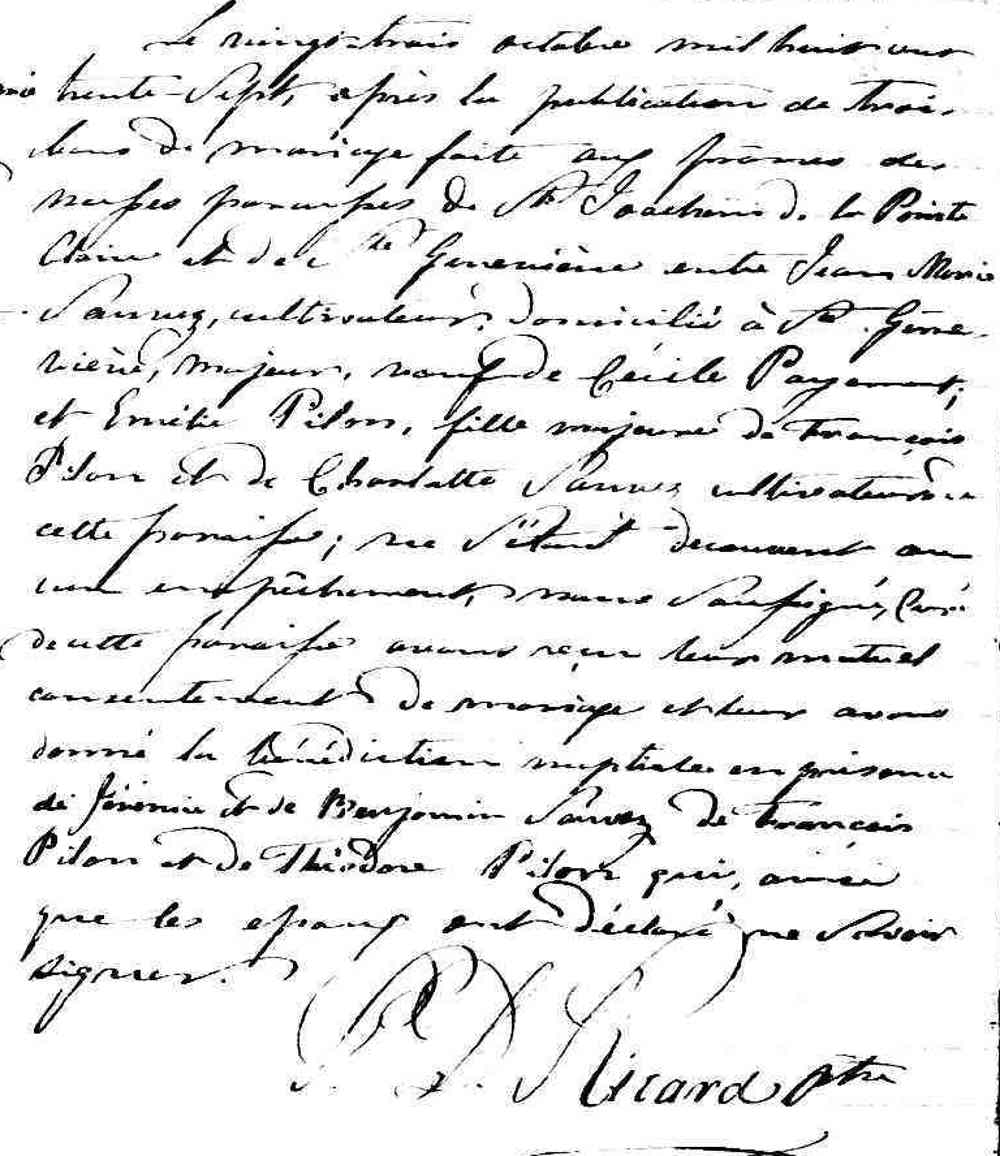 Le vingt-trois octobre mil huit cent
trente-Sept, après la publication de trois
bans de mariage faite aux prônes des
messes paroissiales de St Joachim de la Pointe
Claire et de Ste Geneviève entre Jean Marie
Sauvez, cultivateur, domicilié à Ste Géne-
viève, majeur, veuf de Cécile Payement;
et Emélie Pilon, fille majeure de François
Pilon et de Charlotte Sauvez cultivateurs de
cette paroisse; ne S'étant découvert au
cun empêchement, nous Soussigné, Curé
de cette paroisse avons reçu leur mutuel
consentement de mariage et leur avons
donné la bénédiction nuptiale en présence
de Jérémie et de Benjamin Sauvez de François
Pilon et de Théodore Pilon qui, ainsi
que les epoux ont déclaré ne Savoir
signer.
Ricard Ptre